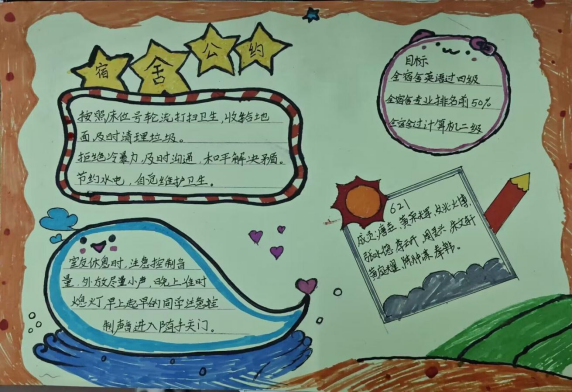 宿舍公约
按照床位号轮流打扫卫生,收拾地
面,及时清理垃圾。
拒绝冷暴力,及时沟通,和平解决矛盾。
节约水电,自觉维护卫生。
目标
全宿舍英语过四级
全宿舍专业排名前50%
全宿舍过计算机二级
室友休息时,注意控制音
量,外放尽量小声,晚上准时
熄灯,早上起早的同学注意控
制声音,进入随手关门。
621
成员: